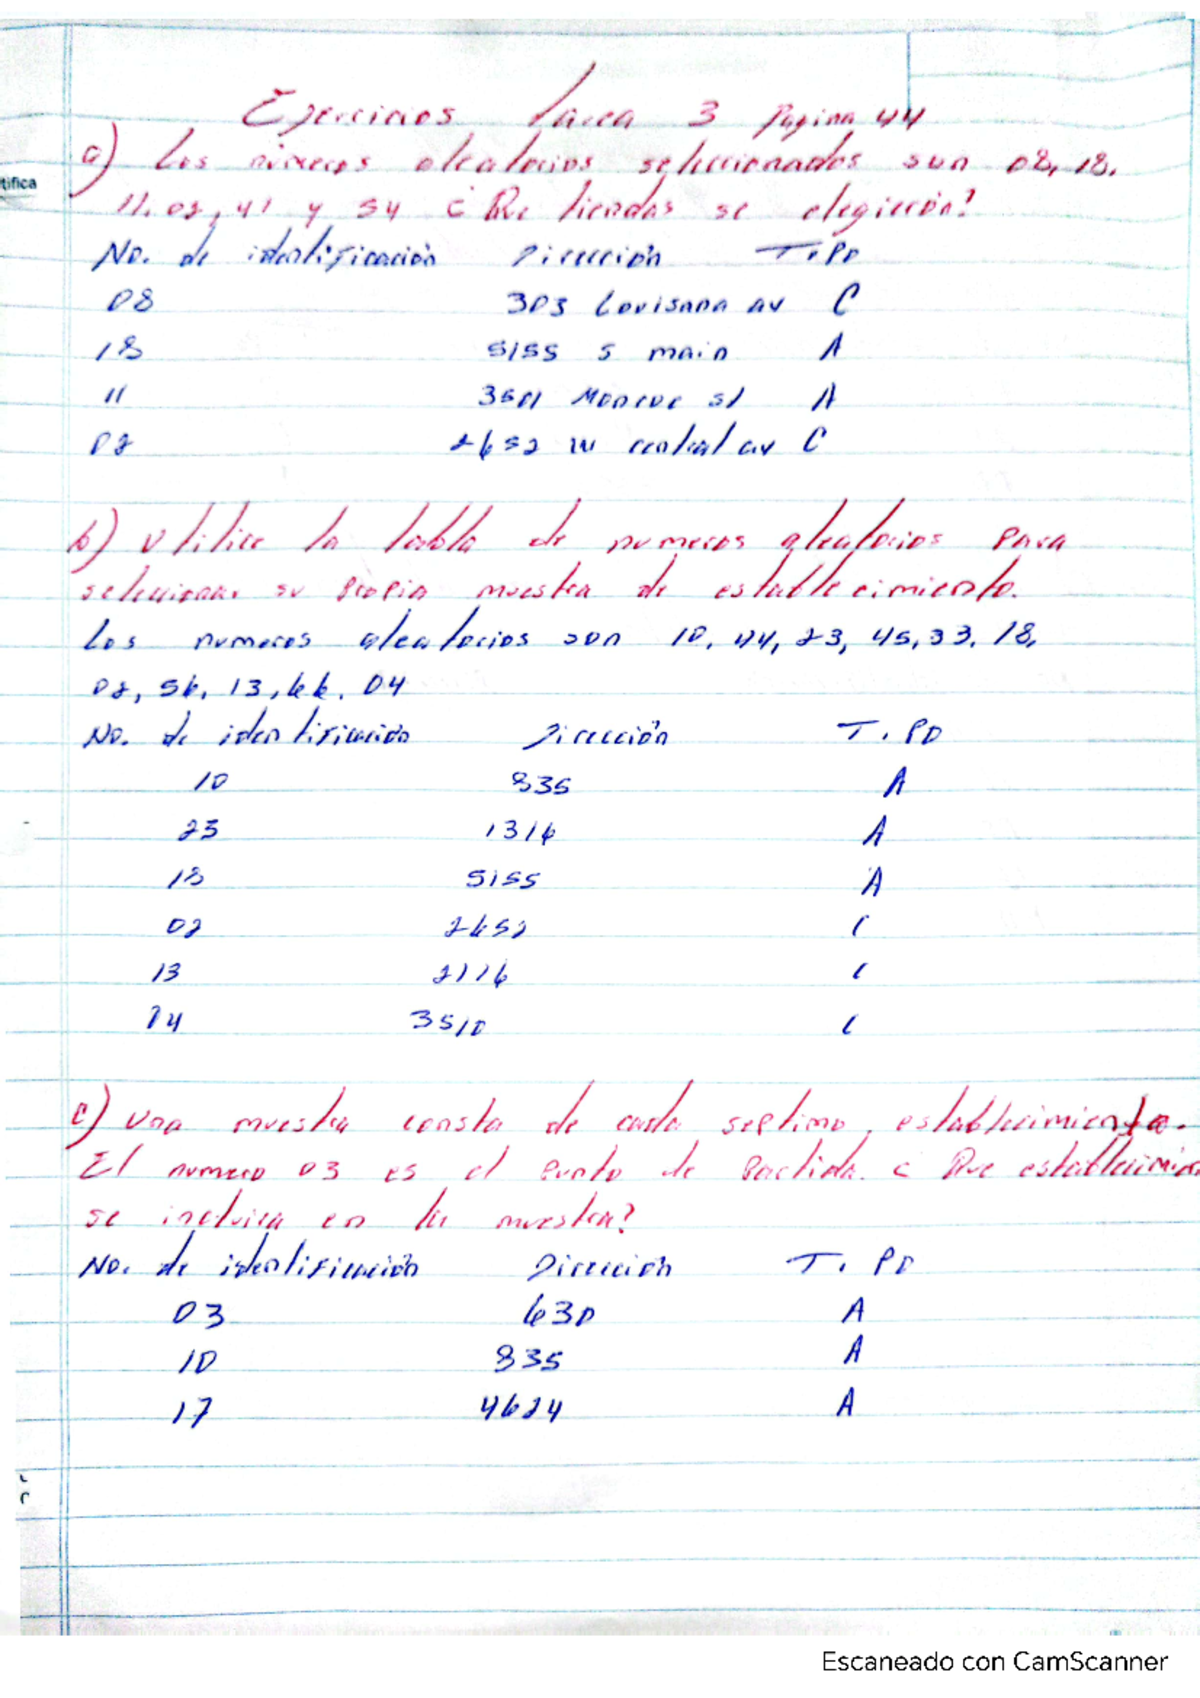 Ejercicios tarea 3 Pagina 44
a) Los números aleatorios seleccionados son 08, 18,
tifica
11, 02, 41 y 54 ¿ Que tiendas se elegieron?
No. de identificación Dirección T.PD
08 303 Lovisana av C
18 5155 S main A
11 3501 Monroe st A
02 2652 W central av C
b) Utilice la tabla de numeros aleatorios para
seleccionar su propia muestra de establecimiento.
Los numeros aleatorios son 10, 44, 23, 45, 33, 18,
02, 56, 13, 66, 04
No. de identificación Dirección T. PD
10 835 A
23 1316 A
18 5155 A
02 2652 C
13 2116 C
04 3510 C
c) Una muestra consta de cada septimo, establecimiento.
El numero 03 es el punto de partida. ¿ Que establecimien
se incluira en la muestra?
No. de identificación Dirección T. PD
03 630 A
10 835 A
17 4624 A
Escaneado con CamScanner